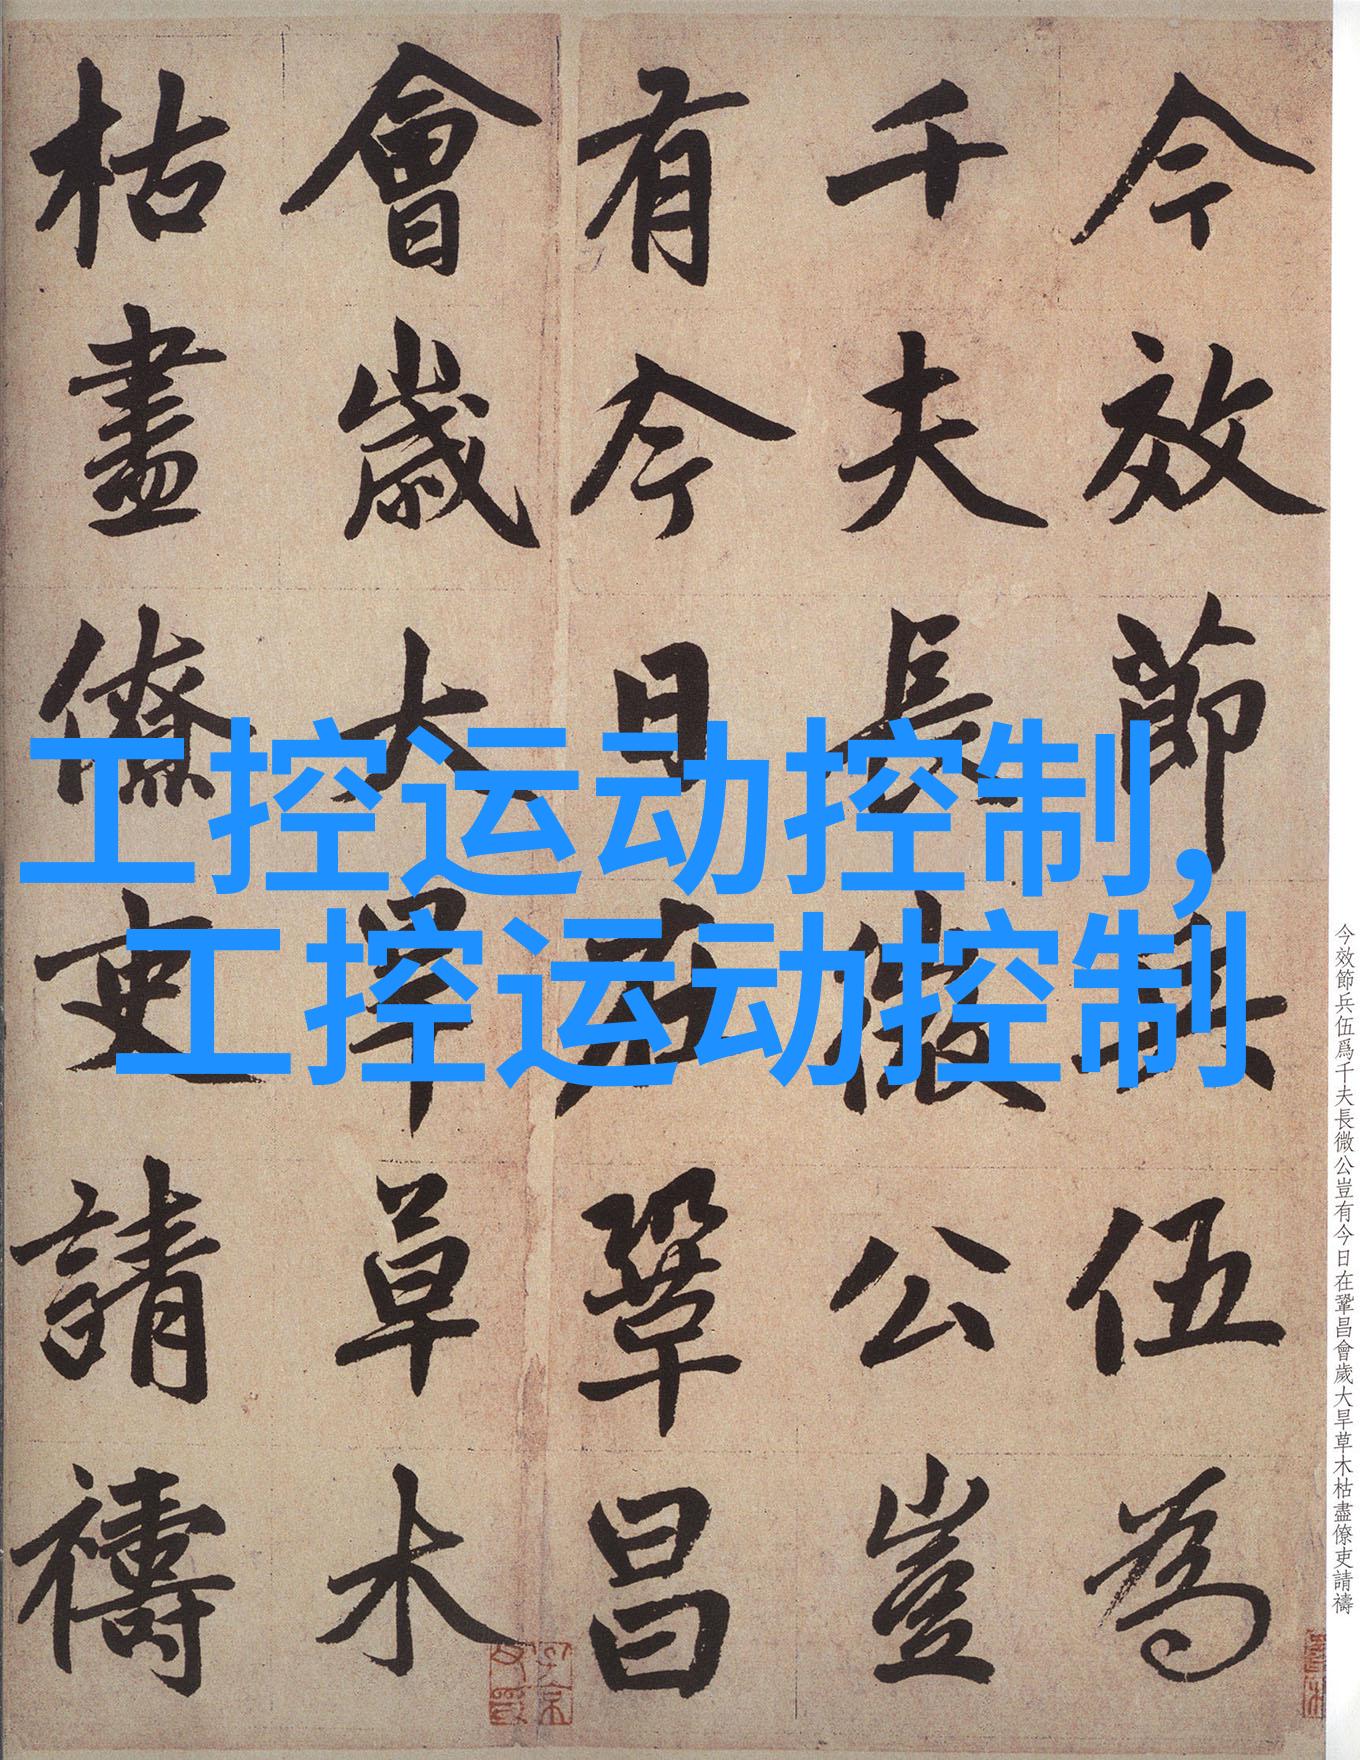 今效節兵伍為
千夫長微公豈
有今日在鞏昌
會歲大旱草木
枯盡僚吏請禱
工控运动控制,
工控运动控制
今效節兵伍爲千夫長微公豈有今日在鞏昌會歲大旱草木枯盡僚吏請禱